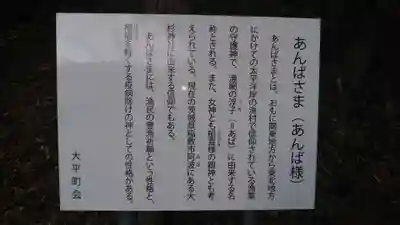 あんばさま(あんば様)
あんばさまとは、おもに関東地方から東北地方
にかけての太平洋岸の漁村で信仰されている漁業
の守護神で、漁網の浮子(=あば)に由来する名
称とされる。また、女神とも稲荷様の親神とも考
えられている。現在の茨城県稲敷市阿波にある大
杉神社に由来する信仰でもある。
あんばさまには、漁民の豊漁祈願という性格と、
疱瘡を軽くする疫病除けの神としての性格がある。
大平町会